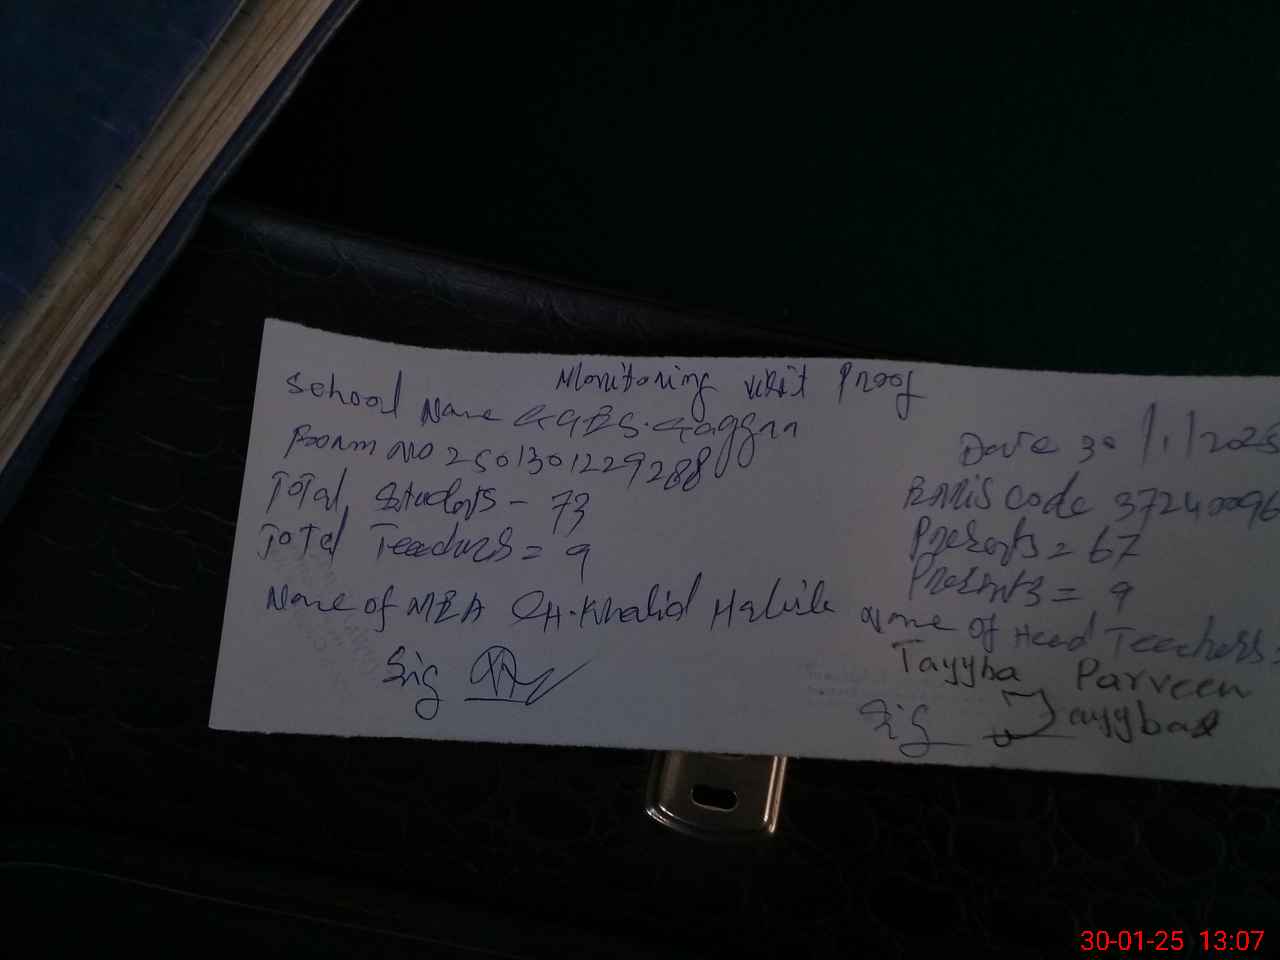 Monitoring visit Proof
School Name GGES. Gaggan
Date 30/1/2025
Form No 2501301229288
EMIS Code 37240096
Total Students - 73
Presents = 67
Total Teachers = 9
Presents = 9
Name of MEA CH. Khalid Habib
Name of Head Teachers:
Tayyba Parveen
Sig
Sig Tayyba
30-01-25 13:07